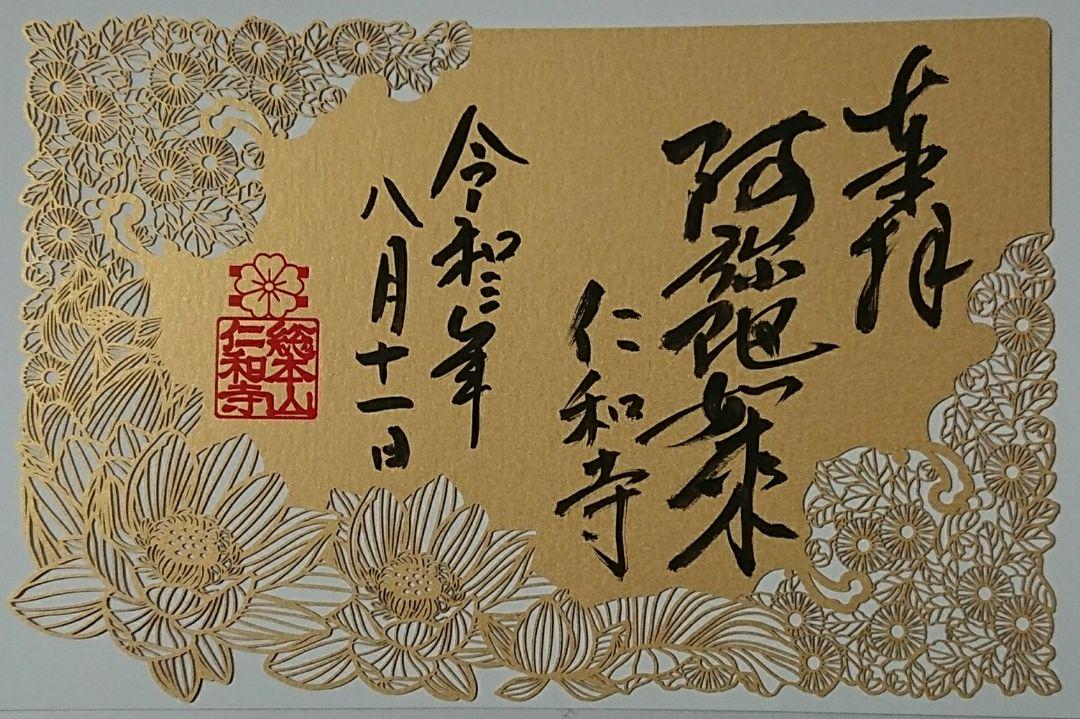 奉拝
阿弥陀如来
仁和寺
令和三年
八月十一日
総本山
仁和寺